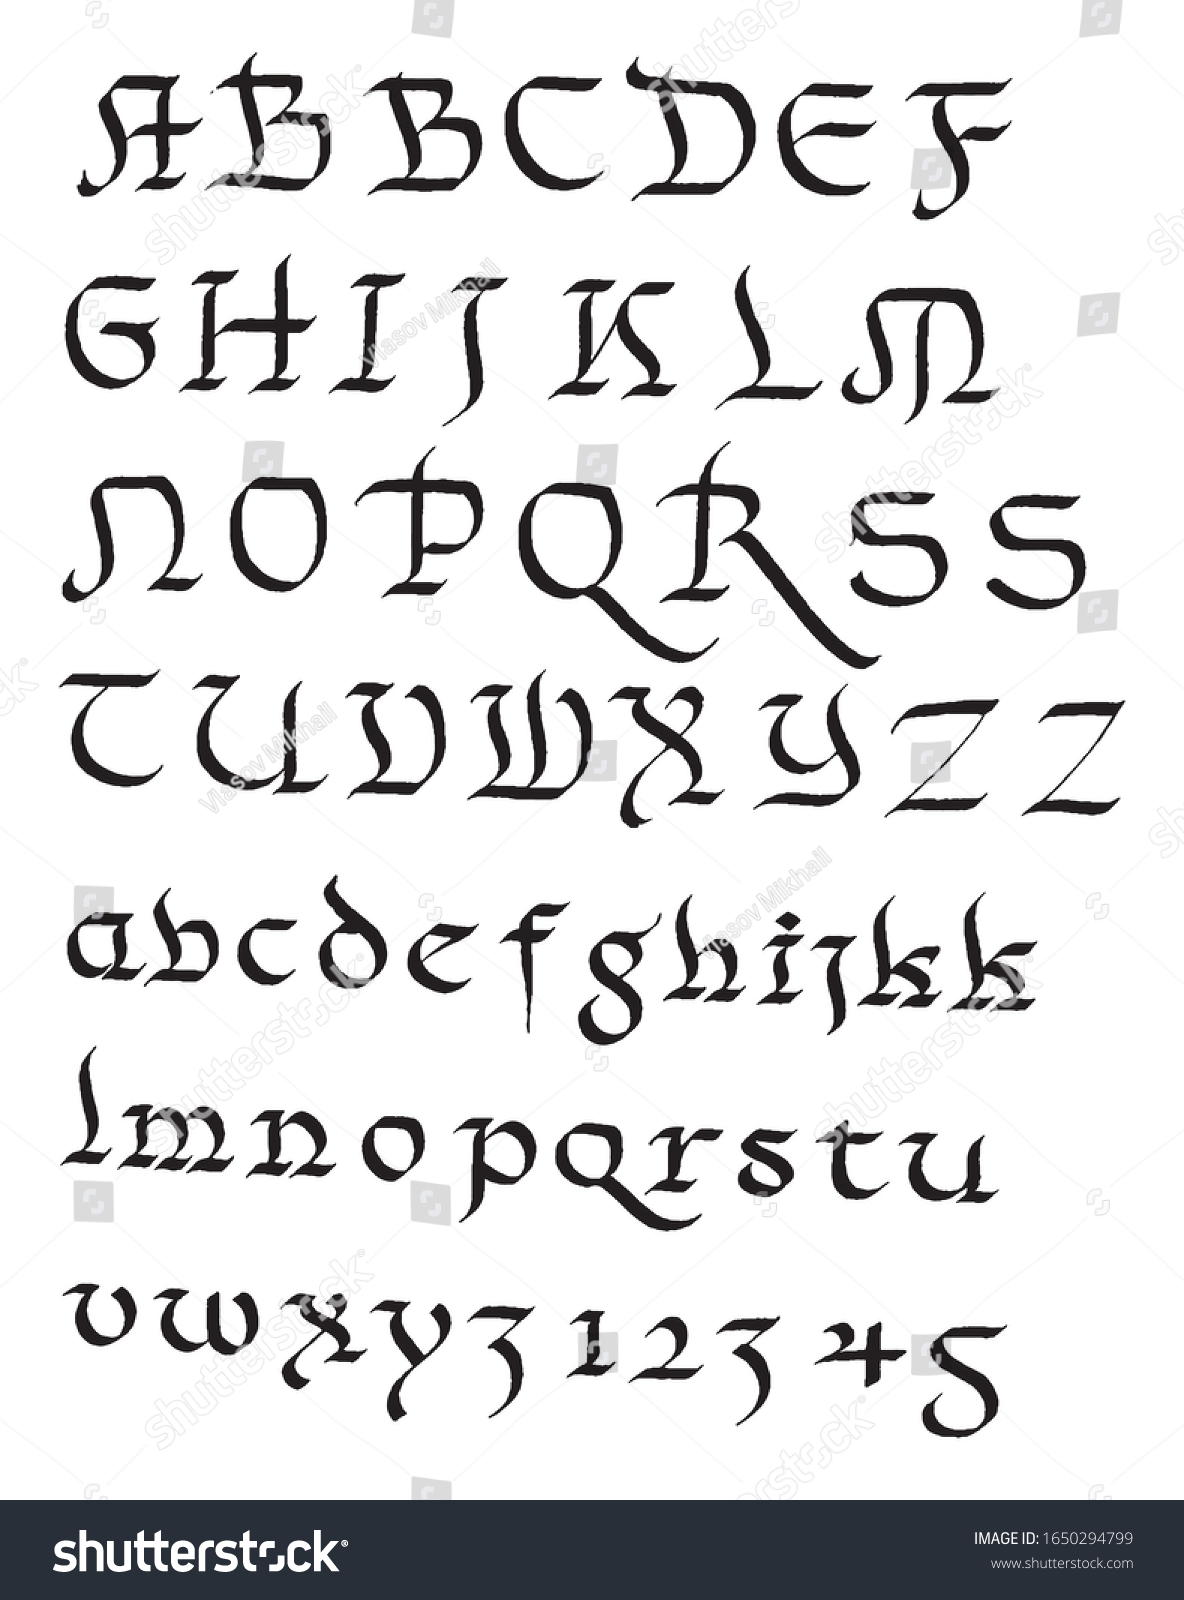 A B B C D E F
G H I J K L M
N O P Q R S S
T U V W X Y Z Z
a b c d e f g h i j k k
l m n o p q r s t u
v w x y z 1 2 3 4 5
shutterstock
Vlasov Mikhail
shutterstock
IMAGE ID: 1650294799
www.shutterstock.com